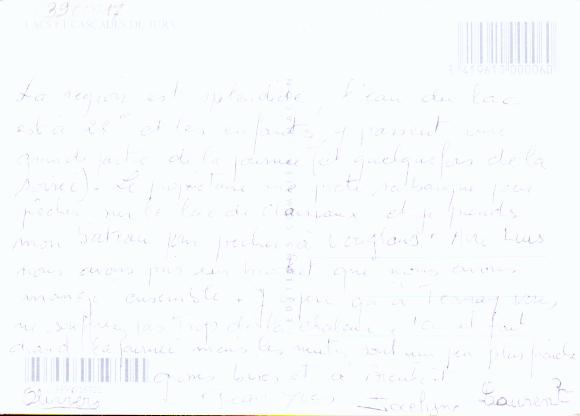 39
17
LACS ET CASCADES DU JURA
La région est splendide, l'eau du lac
est à 28° et les enfants y passent une
grande partie de la journée (et quelquefois de la
soirée). Le propriétaire me prête sa barque pour
pêcher sur le lac de et je prends
mon bateau pour pêcher à Vouglans. Avec Luis
nous avons pris un brochet que nous avons
mangé ensemble. J'espère qu'à vous
ne souffrez pas trop de la chaleur, ici il fait
chaud la journée mais les nuits sont un peu plus
Gros bises et à bientôt
Jean Yves
Jocelyne Laurent